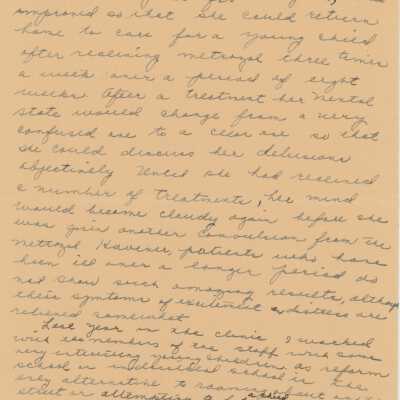 improved so that she could return
home to care for a young child
after receiving metrazol three times
a week over a period of eight
weeks. After a treatment her mental
state would change from a very
confused one to a clear one so that
she could discuss her delusions
objectively. Until she had received
a number of treatments, her mind
would become cloudy again before she
was given another convulsion from the
metrazol. However, patients who have
been ill over a longer period do
not show such amazing results, although
their symtoms of excitement or distress are
relieved somewhat.
Last year in the clinic I worked
with members of the staff with some
very interesting young children as reform
school or industrial school is the
only alternative to roaming about
street or attempting